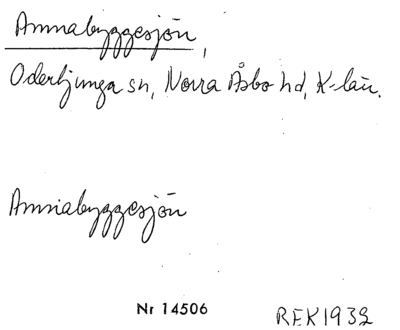 Amnabyggesjön,
Oderljunga sn, Norra Åsbo hd, K-län.
Amnabyggesjön
Nr 14506
REK1932